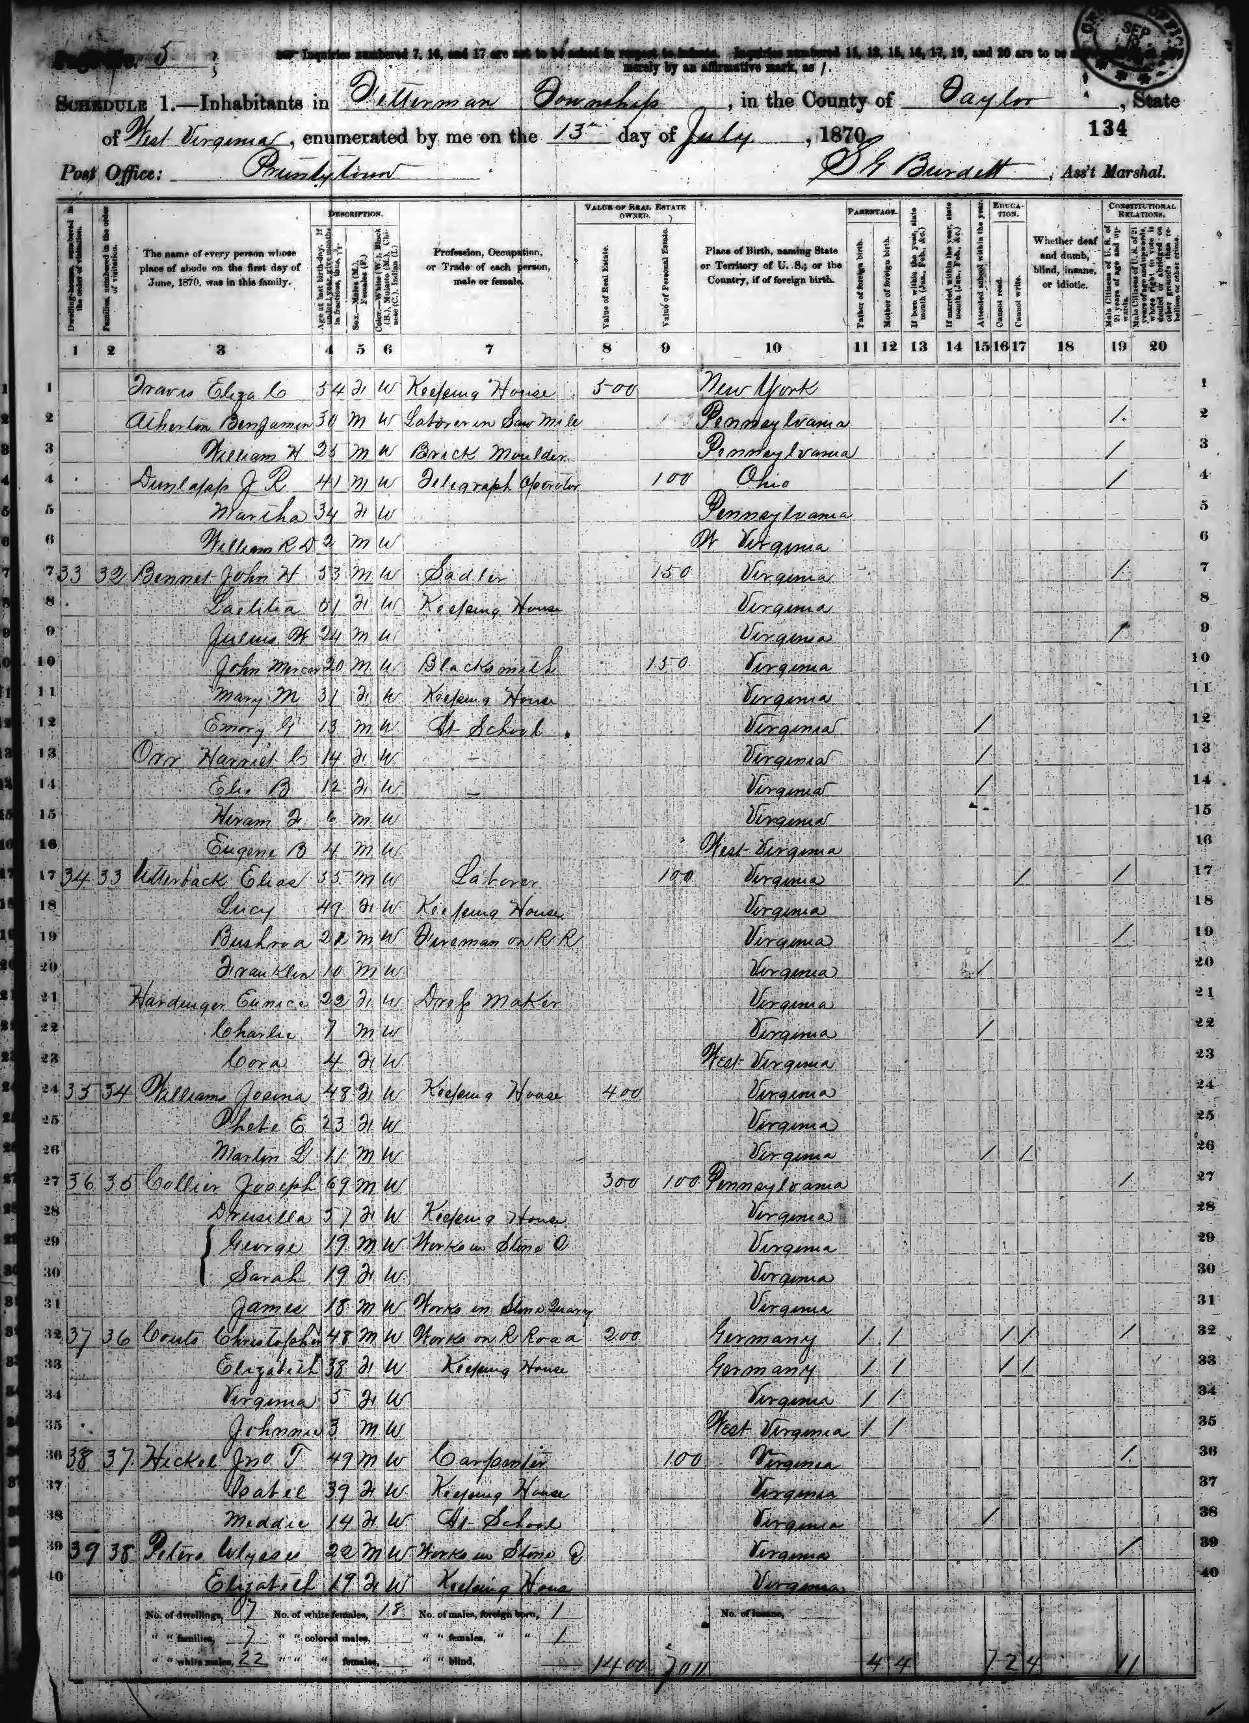 Page No. 5
Inquiries numbered 7, 16, and 17 are not to be asked in respect to infants. Inquiries numbered 11, 12, 15, 16, 17, 19, and 20 are to be
merely by an affirmative mark, as /.
SCHEDULE 1.—Inhabitants in Fetterman Township, in the County of Taylor, State
of West Virginia, enumerated by me on the 13th day of July, 1870.
134
Post Office: Pruntytown S G Burdett, Ass't Marshal.
DESCRIPTION. VALUE OF REAL ESTATE OWNED. PARENTAGE. EDUCATION. CONSTITUTIONAL RELATIONS.
Dwelling-houses, numbered in the order of visitation.
Families, numbered in the order of visitation.
The name of every person whose place of abode on the first day of June, 1870, was in this family.
Age at last birth-day. If under 1 year, give months in fractions, thus
Sex.—Males (M.), Females (F.)
Color.—White (W.), Black (B.), Mulatto (M.), Chinese (C.), Indian (I.)
Profession, Occupation, or Trade of each person, male or female.
Value of Real Estate.
Value of Personal Estate.
Place of Birth, naming State or Territory of U. S.; or the Country, if of foreign birth.
Father of foreign birth.
Mother of foreign birth.
If born within the year, state month (Jan., Feb., &c.)
If married within the year, state month (Jan., Feb., &c.)
Attended school within the year.
Cannot read.
Cannot write.
Whether deaf and dumb, blind, insane, or idiotic.
Male Citizens of U. S. of 21 years of age and upwards.
Male Citizens of U. S. of 21 years of age and upwards, whose right to vote is denied or abridged on other grounds than rebellion or other crime.
1 2 3 4 5 6 7 8 9 10 11 12 13 14 15 16 17 18 19 20
1 Travis Eliza C 54 F W Keeping House 500 New York 1
2 Atherton Benjamin 30 M W Laborer in Saw Mile Pennsylvania / 2
3 William H 25 M W Brick Moulder Pennsylvania / 3
4 Dunlapp J R 41 M W Telegraph Operator 100 Ohio / 4
5 Martha 34 F W Pennsylvania 5
6 William R D 2 M W W Virginia 6
7 33 32 Bennet John H 53 M W Sadler 150 Virginia / 7
8 Laetitia 51 F W Keeping House Virginia 8
9 Julius W 24 M W Virginia / 9
10 John Mercer 20 M W Blacksmith 150 Virginia 10
11 Mary M 31 F W Keeping House Virginia 11
12 Emory G 13 M W At School Virginia / 12
13 Orr Harriet C 14 F W – Virginia / 13
14 Elie B 12 F W – Virginia / 14
15 Hiram F 6 M W Virginia 15
16 Eugene B 4 M W West Virginia 16
17 34 33 Utterback Elias 55 M W Laborer 100 Virginia / / 17
18 Lucy 49 F W Keeping House Virginia 18
19 Bushroa 21 M W Fireman on R R Virginia / 19
20 Franklin 10 M W Virginia / 20
21 Hardinger Eunice 22 F W Dress Maker Virginia 21
22 Charlie 7 M W Virginia / 22
23 Cora 4 F W West Virginia 23
24 35 34 Williams Josina 48 F W Keeping House 400 Virginia 24
25 Phebe E 23 F W Virginia 25
26 Martin L 11 M W Virginia / / 26
27 36 35 Collier Joseph 69 M W 300 100 Pennsylvania / 27
28 Drusilla 57 F W Keeping House Virginia 28
29 George 19 M W Works in Stone Q Virginia 29
30 Sarah 19 F W Virginia 30
31 James 18 M W Works in Stone Quarry Virginia 31
32 37 36 Couts Christopher 48 M W Works on R Road 200 Germany / / / / / 32
33 Elizabeth 38 F W Keeping House Germany / / / / 33
34 Virginia 5 F W Virginia / / 34
35 Johnnie 3 M W West Virginia / / 35
36 38 37 Heckel Jno. T 49 M W Carpenter 100 Virginia / 36
37 Isabel 39 F W Keeping House Virginia 37
38 Meddie 14 F W At School Virginia / 38
39 39 38 Peters Ulysses 22 M W Works in Stone Q Virginia / 39
40 Elizabeth 19 F W Keeping House Virginia 40
No. of dwellings, 7 No. of white females, 18 No. of males, foreign born, 1 No. of insane,
" " families, 7 " " colored males, " " females, " " 1
" " white males, 22 " " " females, " " blind, 1400 700 4 4 7 2 4 11